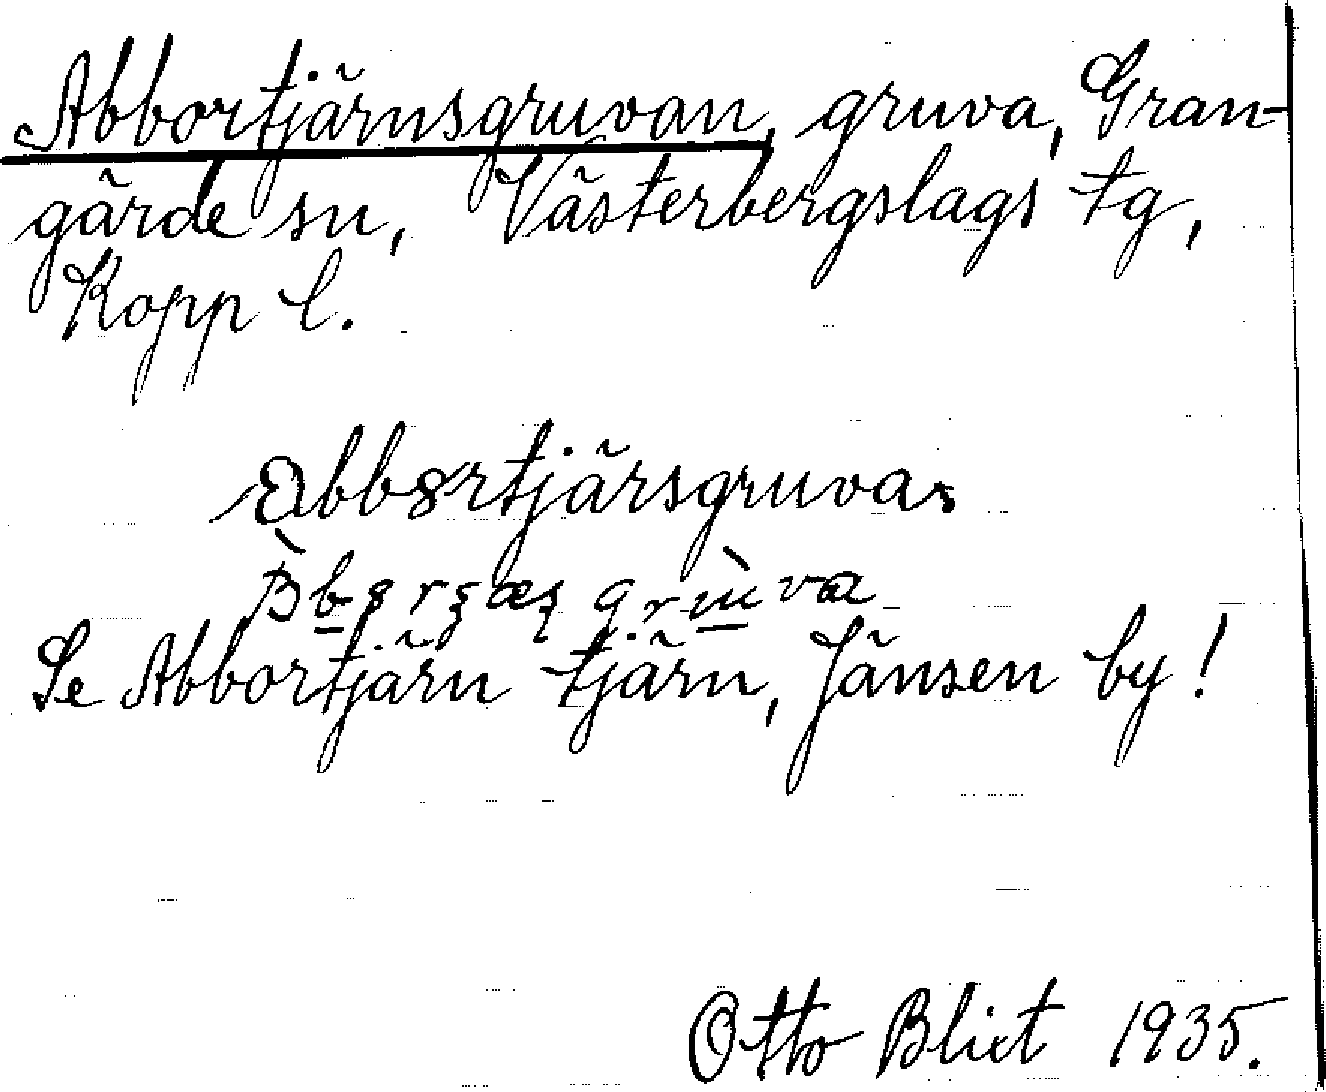 Abbortjärnsgruvan, gruva, Gran-
gärde sn, Västerbergslags tg,
Kopp l.
Abbortjärsgruva
Se Abbortjärn tjärn, Jänsen by!
Otto Blixt 1935.